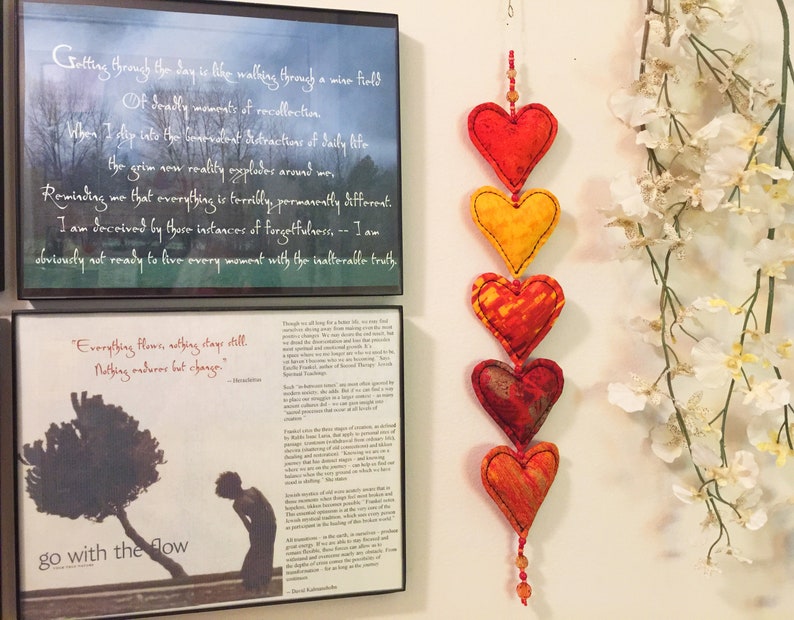 Getting through the day is like walking through a mine field
Of deadly moments of recollection.
When I slip into the benevolent distractions of daily life
the grim new reality explodes around me,
Reminding me that everything is terribly, permanently different.
I am deceived by those instances of forgetfulness, -- I am
obviously not ready to live every moment with the inalterable truth.
"Everything flows, nothing stays still.
Nothing endures but change."
-- Heracleitus
go with the flow
YOUR TRUE NATURE
Though we all long for a better life, we may find
ourselves shying away from making even the most
positive changes. We may desire the end result, but
we dread the disorientation and loss that precedes
most spiritual and emotional growth. It's
a space where we no longer are who we used to be,
yet haven't become who we are becoming." Says
Estelle Frankel, author of Second Therapy: Jewish
Spiritual Teachings.
Such "in-between times" are most often ignored by
modern society, she adds. But if we can find a way
to place our struggles in a larger context - as many
ancient cultures did - we can gain insight into
"sacred processes that occur at all levels of
creation."
Frankel cites the three stages of creation, as defined
by Rabbi Isaac Luria, that apply to personal rites of
passage: tzimtzum (withdrawal from ordinary life),
shevira (shattering of old connections) and tikkun
(healing and restoration). "Knowing we are on a
journey that has distinct stages - and knowing
where we are on the journey - can help us find our
balance when the very ground on which we have
stood is shifting." She states
Jewish mystics of old were acutely aware that in
those moments when things feel most broken and
hopeless, tikkun becomes possible." Frankel notes.
This essential optimism is at the very core of the
Jewish mystical tradition, which sees every person
as participant in the healing of this broken world."
All transitions - in the earth, in ourselves - produce
great energy. If we are able to stay focused and
remain flexible, these forces can allow us to
withstand and overcome nearly any obstacle. From
the depths of crisis comes the possibility of
transformation - for as long as the journey
continues.
-- David Kalmansohn